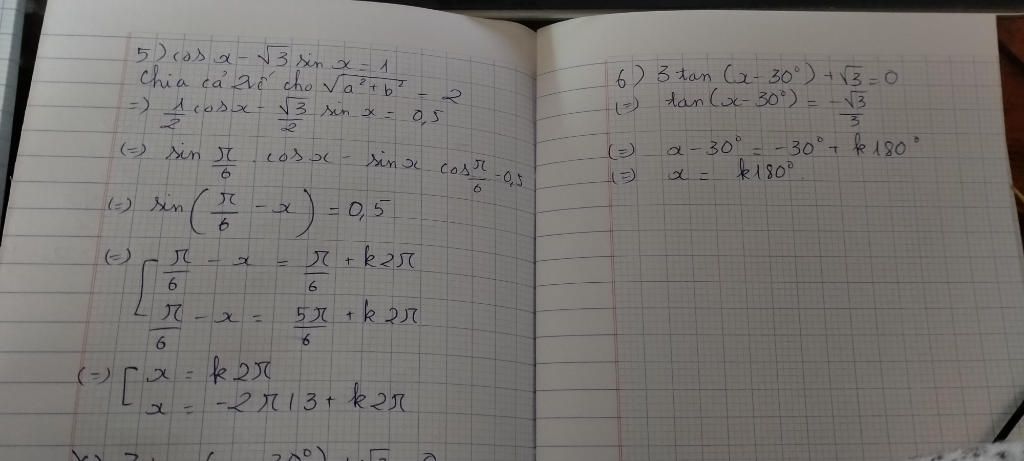 5) cos x - √3 sin x = 1
Chia cả 2 vế cho √a²+b² = 2
=) 1/2 cos x - √3/2 sin x = 0,5
(=) sin π/6 . cos x - sin x cos π/6 = 0,5
(=) sin(π/6 - x) = 0,5
(=) [ π/6 - x = π/6 + k2π
π/6 - x = 5π/6 + k2π
(=) [ x = k2π
x = -2π/3 + k2π
6) 3 tan (x - 30°) + √3 = 0
(=) tan (x - 30°) = -√3/3
(=) x - 30° = -30° + k180°
(=) x = k180°.